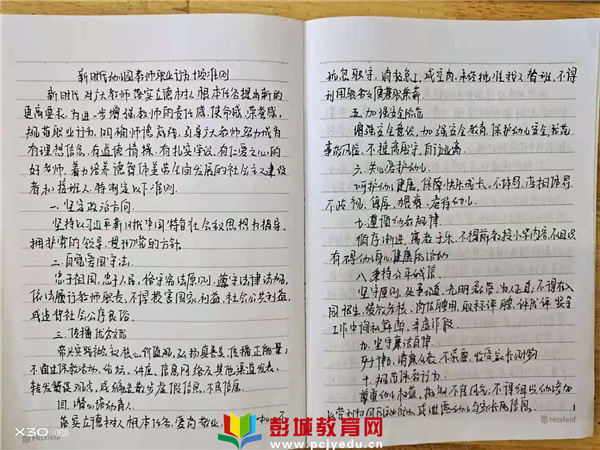 新时代幼儿园教师职业行为十项准则
新时代对广大教师落实立德树人根本任务提出新的
更高要求,为进一步增强教师的责任感、使命感、荣誉感,
规范职业行为,明确师德底线,引导广大教师努力成为
有理想信念、有道德情操、有扎实学识、有仁爱之心的
好老师,着力培养德智体美劳全面发展的社会主义建设
者和接班人,特制定以下准则。
一、坚定政治方向。
坚持以习近平新时代中国特色社会主义思想为指导,
拥护党的领导,贯彻党的方针
二、自觉爱国守法
忠于祖国,忠于人民,恪守宪法原则,遵守法律法规,
依法履行教师职责,不得损害国家利益,社会公共利益,
或违背社会公序良俗。
三、传播优秀文化
带头践行社会主义核心价值观,弘扬真善美,传播正能量;
不通过保教活动、论坛、讲座、信息网络及其他渠道发表、
转发错误观点,或编造散步虚假信息、不良信息。
四、潜心培幼育人
落实立德树人根本任务,爱岗敬业,
在工作期间玩忽职守、消极怠工,或空岗、未经批准找人替班,不得
利用职务之便兼职兼薪
五、加强安全防范
增强安全意识,加强安全教育,保护幼儿安全,防范
事故风险,不擅离职守,自行逃离。
六、关心爱护幼儿
呵护幼儿健康,保障快乐成长,不体罚、变相体罚、
不歧视、侮辱、猥亵、虐待幼儿。
七、遵循幼教规律
循序渐进,寓教于乐,不提前教授小学内容,不组织
有碍幼儿身心健康的活动
八、秉持公平诚信
坚持原则,处事公道,光明磊落,为人正直;不得在入
园招生、绩效考核、岗位聘用、职称评聘、评优评奖等
工作中徇私舞弊、弄虚作假
九、坚守廉洁自律
严于律己,清廉从教,不索要、收受家长财物
十、规范保教行为
尊重幼儿权益,抵制不良风气;不得组织幼儿参加
以营利为目的的活动,或泄露幼儿与家长信息。
X30
Maxleaf
Maxleaf
彭城教育网
www.pcjyedu.cn